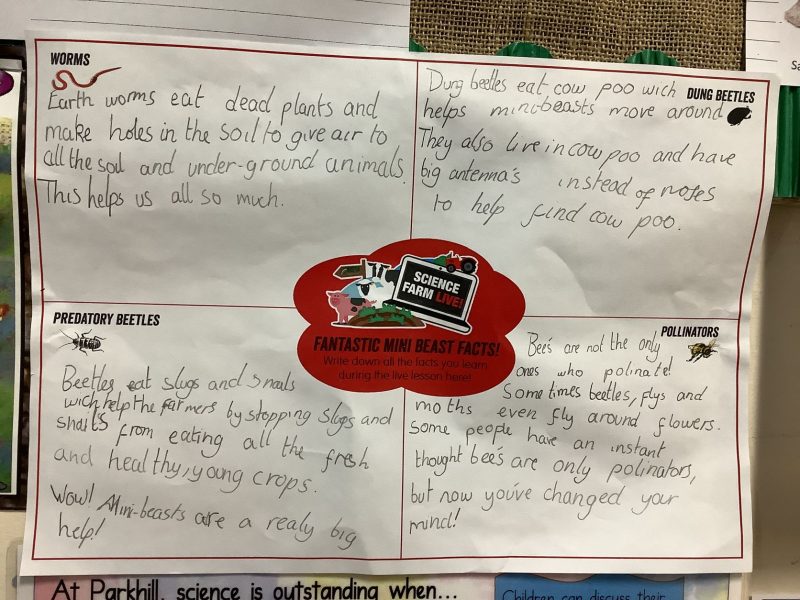 WORMS
Earth worms eat dead plants and
make holes in the soil to give air to
all the soil and under-ground animals.
This helps us all so much.
DUNG BEETLES
Dung beetles eat cow poo wich
helps mini-beasts move around
They also live in cow poo and have
big antenna's instead of noses
to help find cow poo.
SCIENCE
FARM LIVE!
FANTASTIC MINI BEAST FACTS!
Write down all the facts you learn
during the live lesson here!
PREDATORY BEETLES
Beetles eat slugs and snails
wich help the farmers by stopping slugs and
snails from eating all the fresh
and healthy, young crops.
Wow! Mini-beasts are a realy big
help!
POLLINATORS
Bee's are not the only
ones who polinate!
Sometimes beetles, flys and
moths even fly around flowers.
Some people have an instant
thought bee's are only polinators,
but now you've changed your
mind!
At Parkhill, science is outstanding when...
Children can discuss their